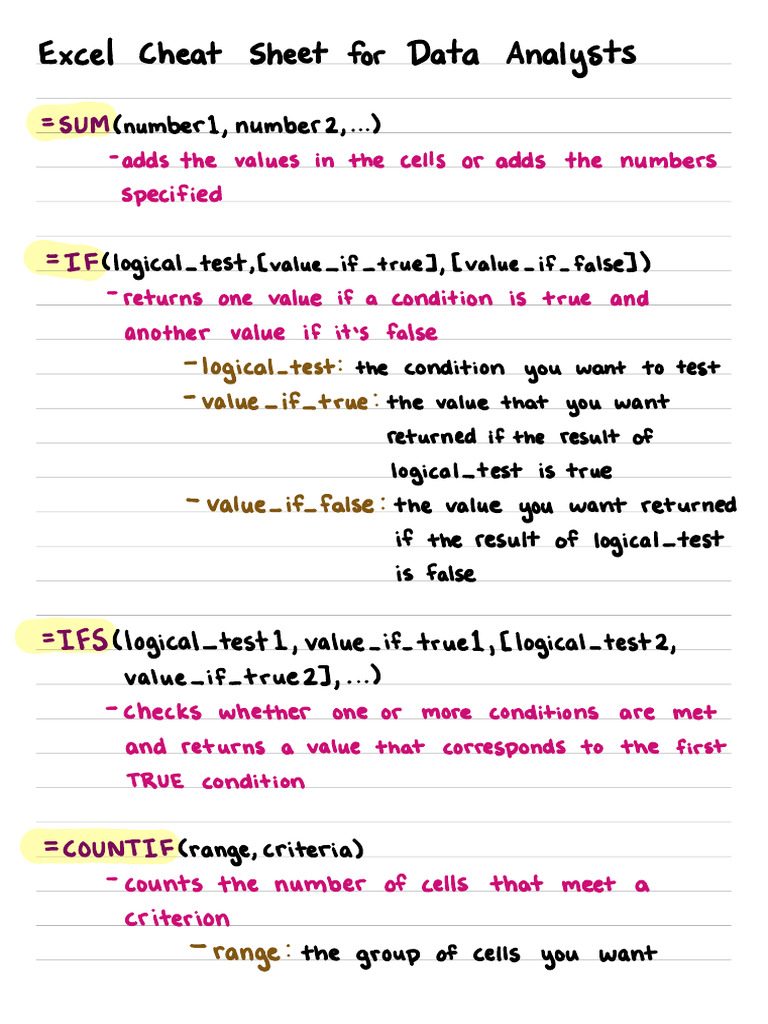 Excel Cheat Sheet for Data Analysts
=SUM(number1, number2,...)
-adds the values in the cells or adds the numbers
specified
=IF(logical_test,[value_if_true],[value_if_false])
-returns one value if a condition is true and
another value if it's false
-logical_test: the condition you want to test
-value_if_true: the value that you want
returned if the result of
logical_test is true
-value_if_false: the value you want returned
if the result of logical_test
is false
=IFS(logical_test1, value_if_true1,[logical_test2,
value_if_true2],...)
-checks whether one or more conditions are met
and returns a value that corresponds to the first
TRUE condition
=COUNTIF(range, criteria)
-counts the number of cells that meet a
criterion
-range: the group of cells you want